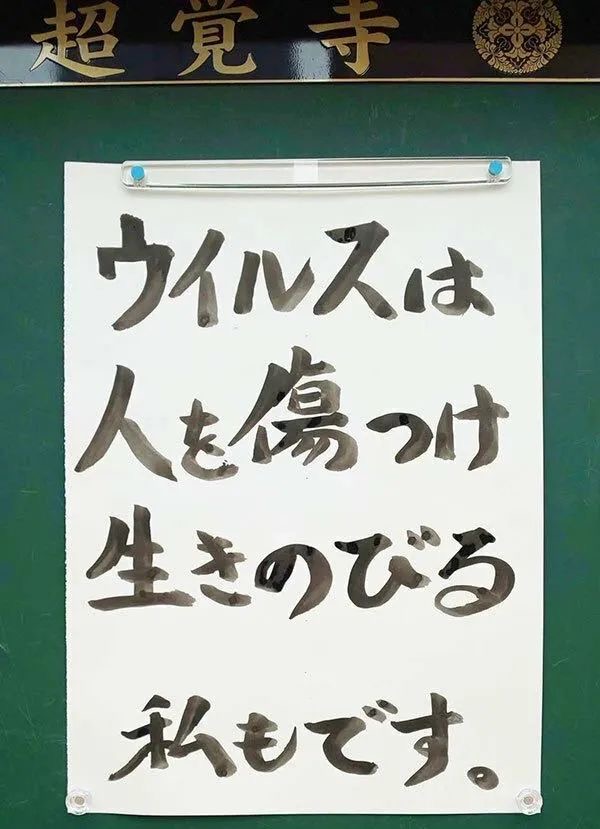 超覚寺
ウイルスは
人を傷つけ
生きのびる
私もです。